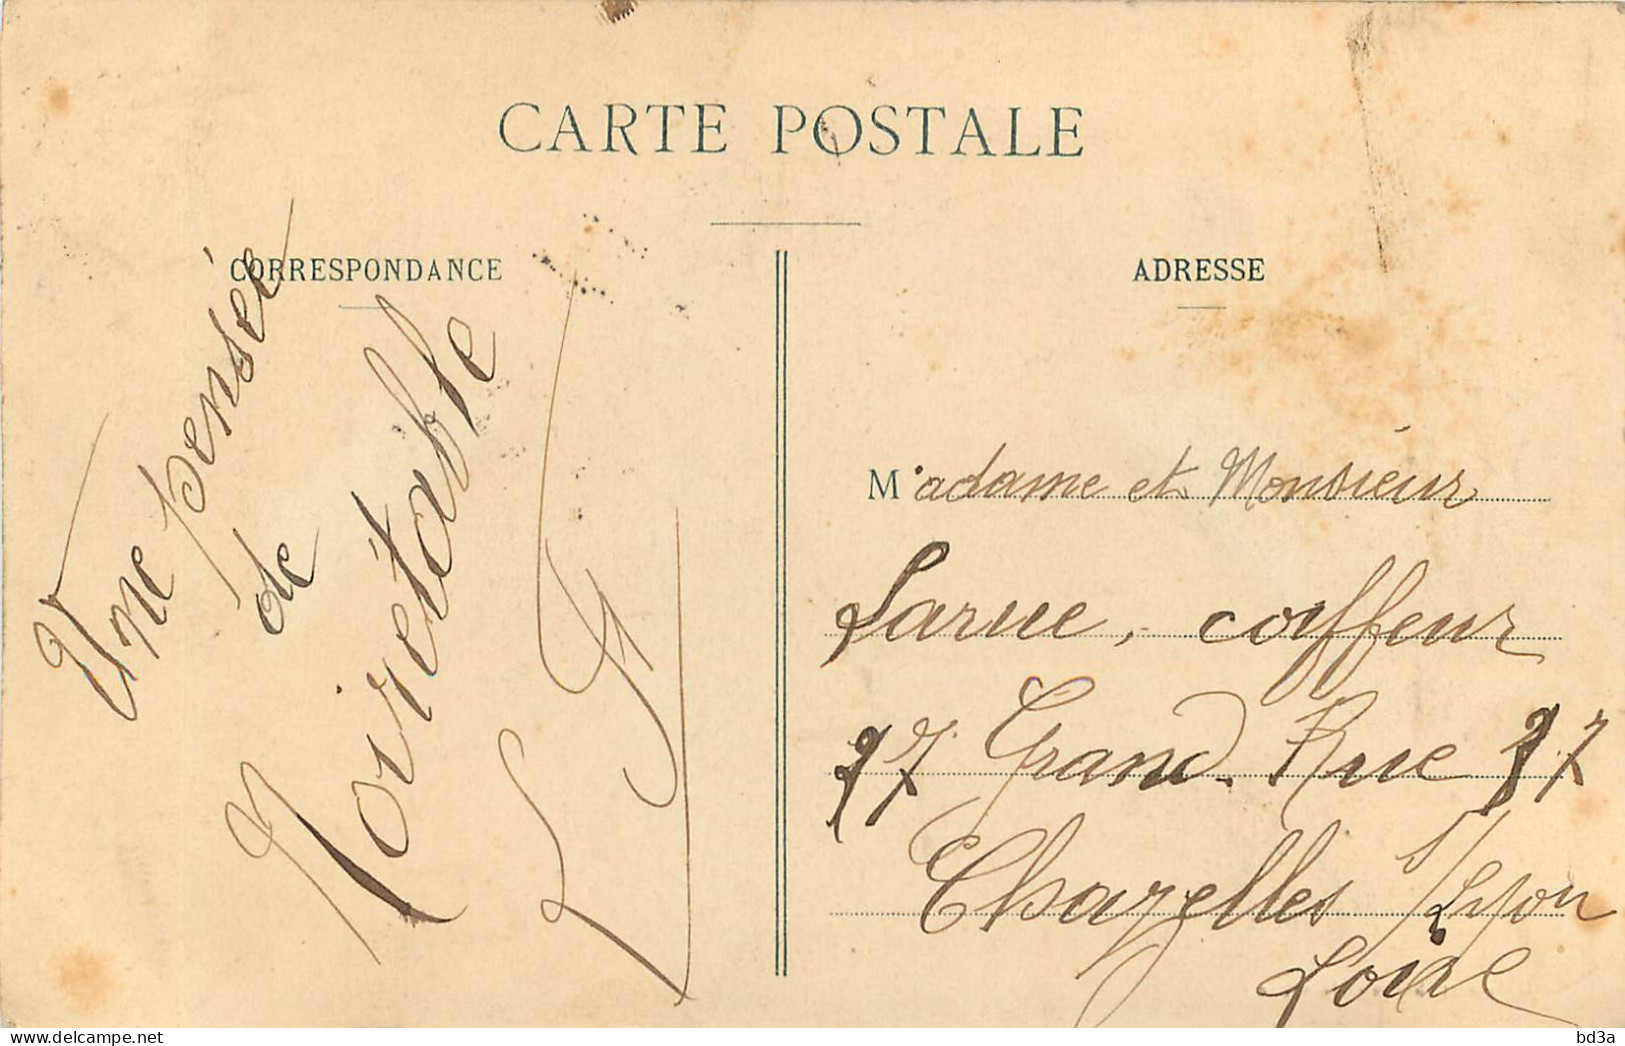 CARTE POSTALE
CORRESPONDANCE
ADRESSE
Une pensée
de
Noirétable
M'adame et Monsieur
Larue, coiffeur
97 Grand Rue 97
Chazelles s/Lyon
Loire
bd3a